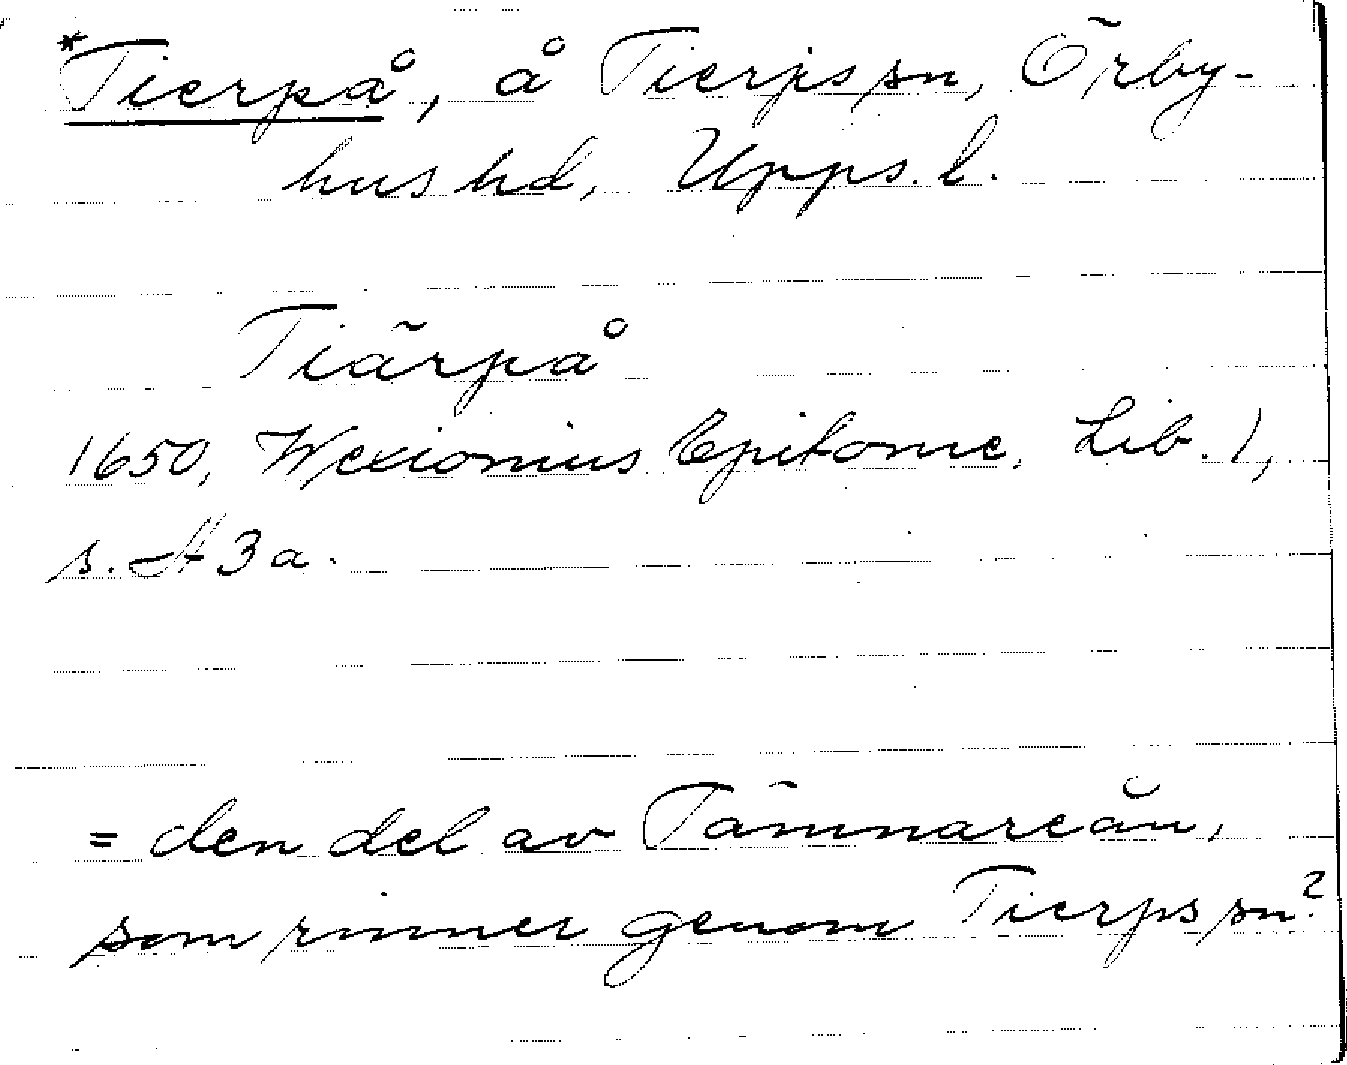 *Tierpå, å Tierps sn, Örby-
hus hd, Upps. l.
Tiärpå
1650, Wexionius Epitome, Lib. 1,
s. A 3 a.
= den del av Tämnareån,
som rinner genom Tierps sn?